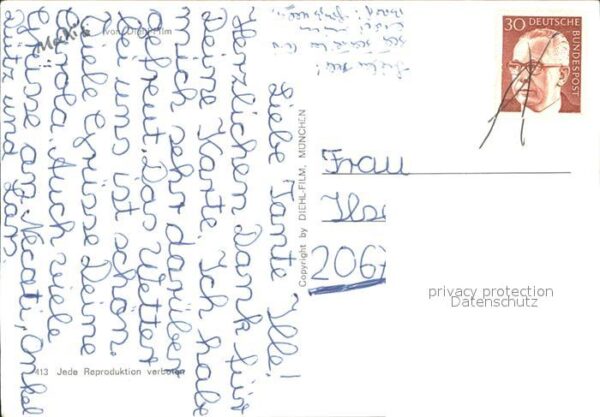 Mecki
von Diehl-Film
Liebe Tante Ille!
Herzlichen Dank für
Deine Karte. Ich habe
mich sehr darüber
gefreut. Das Wetter
bei uns ist schön.
Viele Grüsse Deine
Carola. Auch viele
Grüsse an Necati, Onkel
Lutz und
413 Jede Reproduktion verboten
Copyright by DIEHL-FILM, MÜNCHEN
30 DEUTSCHE BUNDESPOST
Frau
2067
privacy protection
Datenschutz